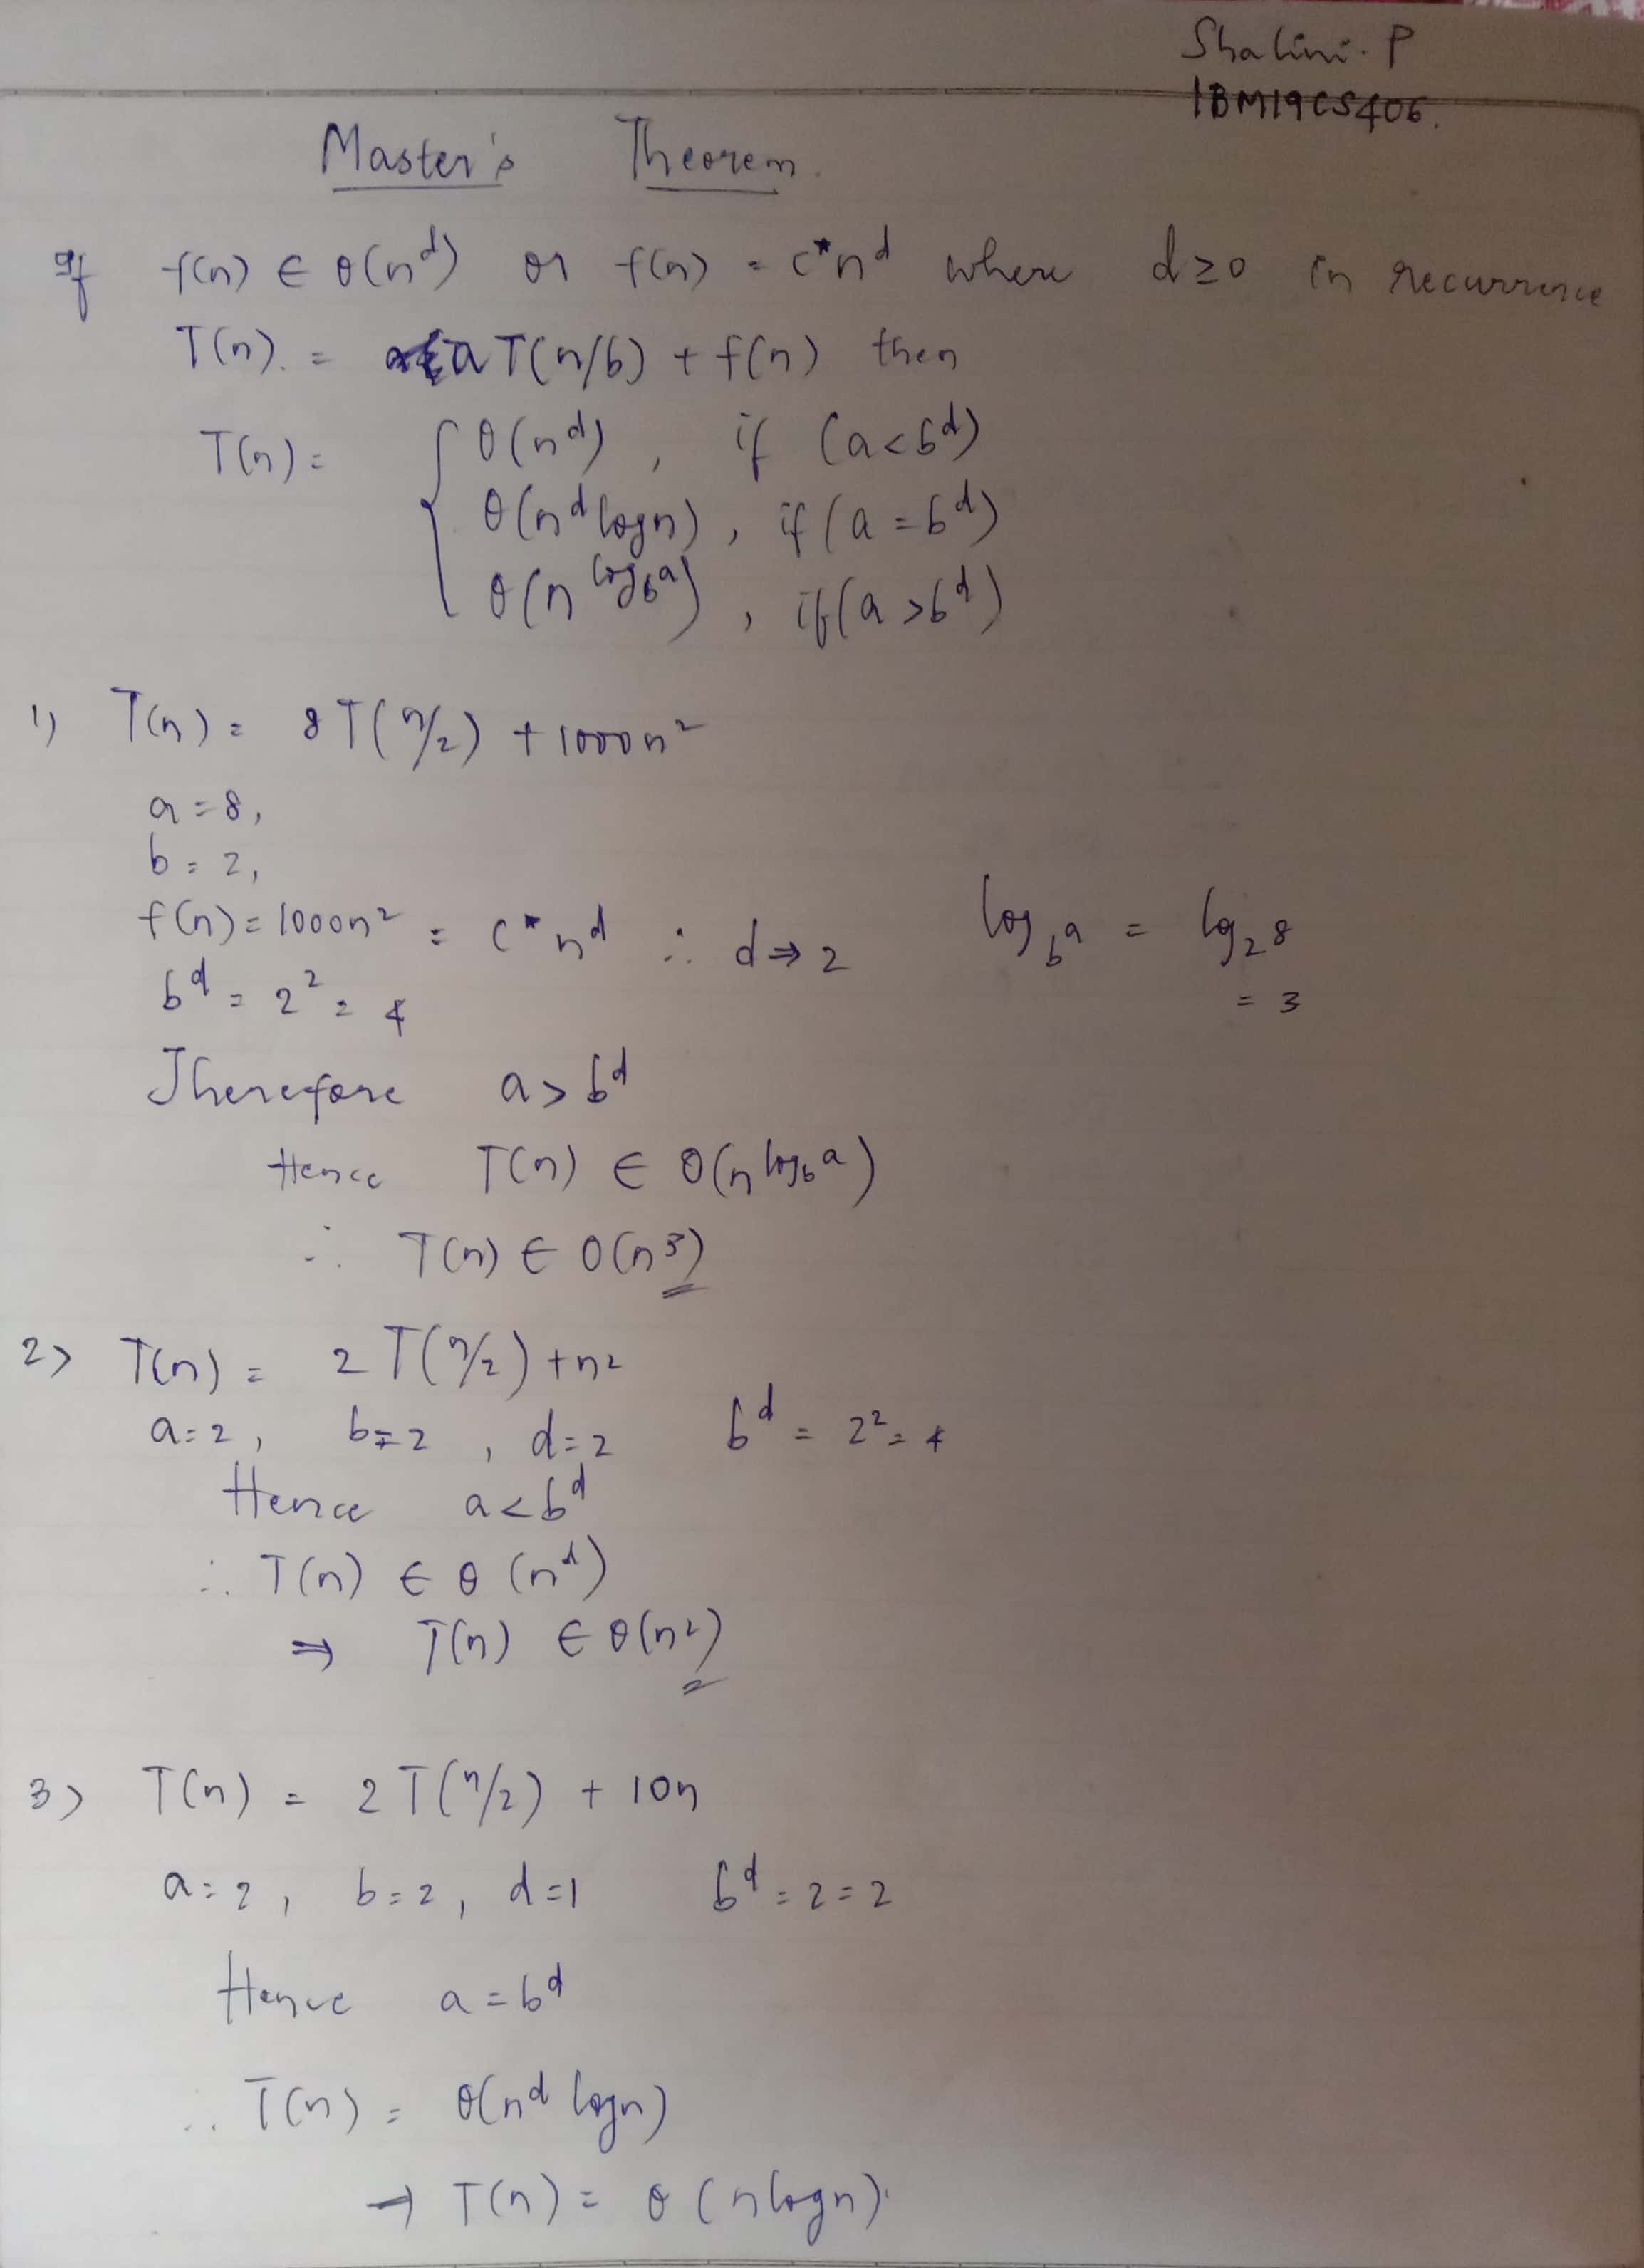 Shalini. P
1BM19CS406.
Master's Theorem.
If f(n) ∈ θ(n^d) or f(n) = c*n^d where d≥0 in recurrence
T(n) = aT(n/b) + f(n) then
T(n) = { θ(n^d) , if (a<b^d)
θ(n^d logn) , if (a = b^d)
θ(n^log_b a) , if (a >b^d)
1) T(n) = 8T(n/2) + 1000n²
a = 8,
b = 2,
f(n) = 1000n² = c*n^d ∴ d⇒2 log_b a = log_2 8
b^d = 2² = 4 = 3
Therefore a > b^d
Hence T(n) ∈ θ(n^log_b a)
∴ T(n) ∈ O(n³)
2> T(n) = 2T(n/2) + n²
a=2, b=2, d=2 b^d = 2² = 4
Hence a < b^d
∴ T(n) ∈ θ(n^d)
⇒ T(n) ∈ θ(n²)
3> T(n) = 2T(n/2) + 10n
a=2, b=2, d=1 b^d = 2 = 2
Hence a = b^d
∴ T(n) = θ(n^d logn)
→ T(n) = θ(nlogn).